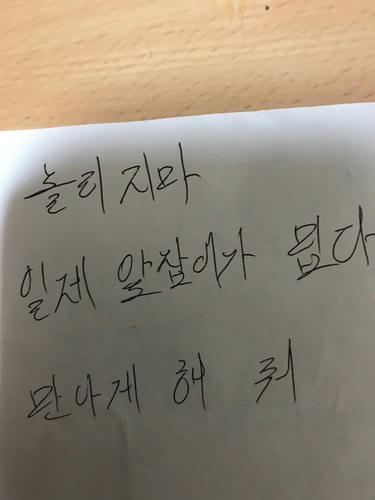 놀리지마
일제 앞잡이가 밉다
만나게 해 줘